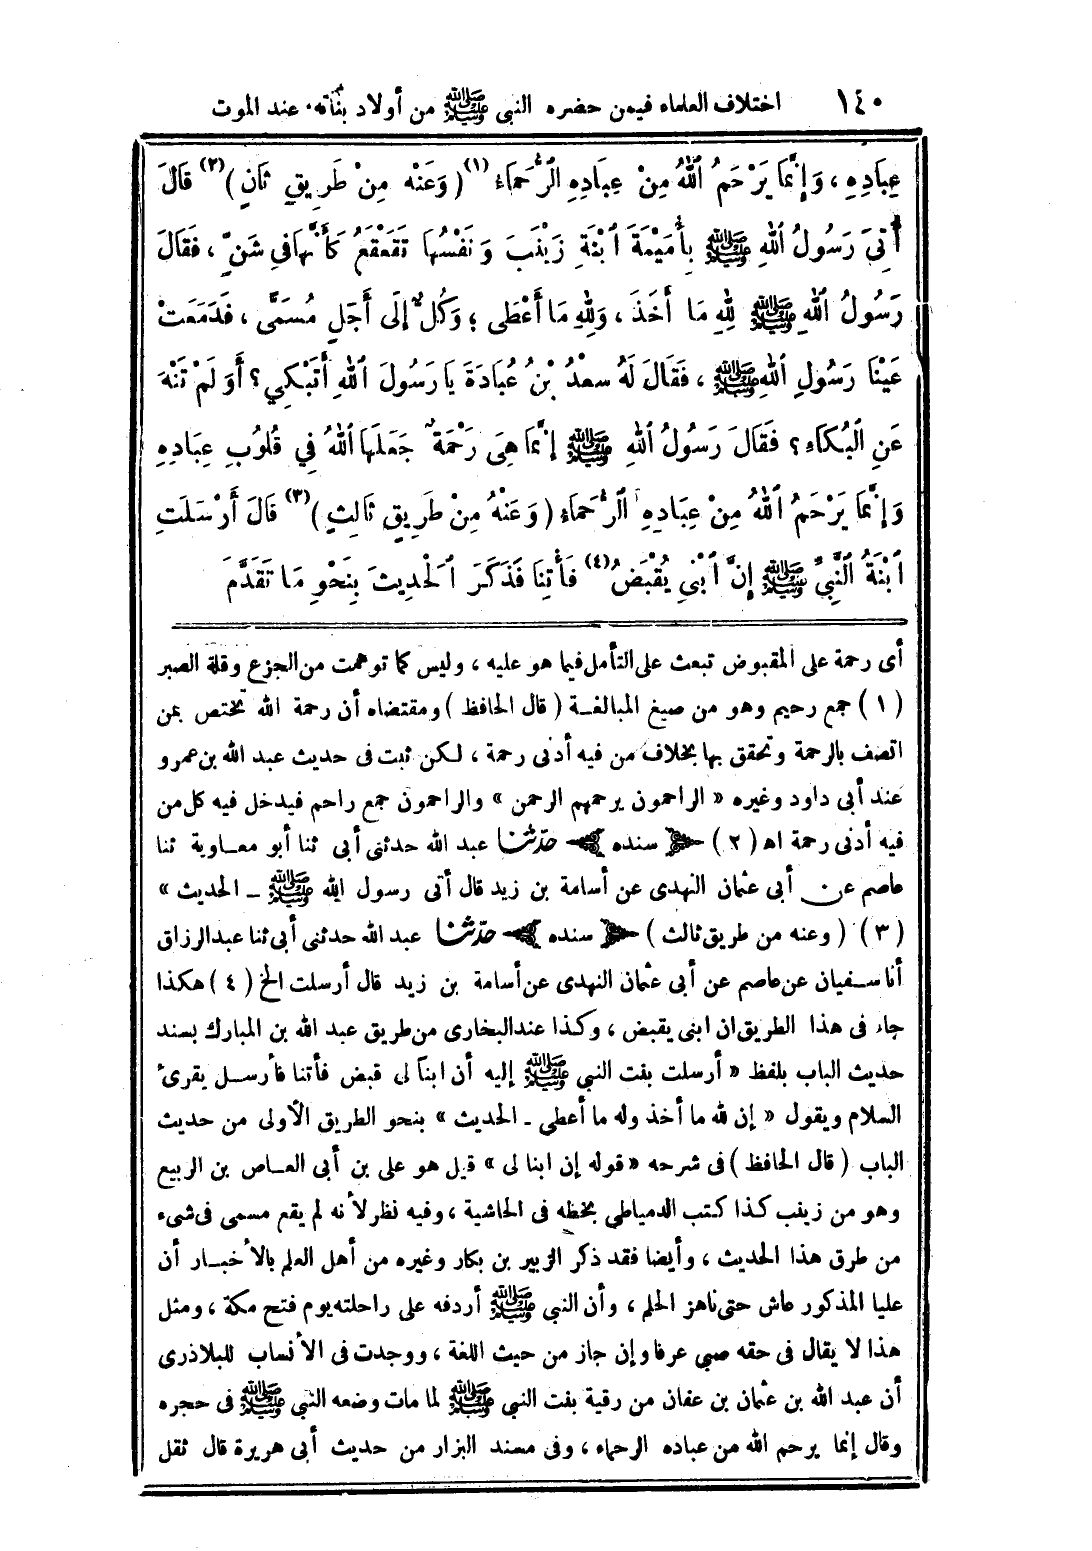 ١٤٠ اختلاف العلماء فيمن حضره النبي ﷺ من أولاد بناته عند الموت
عِبَادِهِ ، وَإِنَّمَا يَرْحَمُ ٱللهُ مِنْ عِبَادِهِ الرُّحَمَاءَ (١) (وَعَنْهُ مِنْ طَرِيقٍ ثَانٍ) (٢) قَالَ
أُتِيَ رَسُولُ ٱللهِ ﷺ بِأُمَيْمَةَ ٱبْنَةِ زَيْنَبَ وَنَفْسُهَا تَقَعْقَعُ كَأَنَّهَا فِي شَنٍّ ، فَقَالَ
رَسُولُ ٱللهِ ﷺ لِلهِ مَا أَخَذَ ، وَلِلهِ مَا أَعْطَى ؛ وَكُلٌّ إِلَى أَجَلٍ مُسَمًّى ، فَدَمَعَتْ
عَيْنَا رَسُولِ ٱللهِ ﷺ ، فَقَالَ لَهُ سَعْدُ بْنُ عُبَادَةَ يَا رَسُولَ ٱللهِ أَتَبْكِي ؟ أَوَ لَمْ تَنْهَ
عَنِ ٱلْبُكَاءِ ؟ فَقَالَ رَسُولُ ٱللهِ ﷺ إِنَّمَا هِيَ رَحْمَةٌ جَعَلَهَا ٱللهُ فِي قُلُوبِ عِبَادِهِ
وَإِنَّمَا يَرْحَمُ ٱللهُ مِنْ عِبَادِهِ ٱلرُّحَمَاءَ (وَعَنْهُ مِنْ طَرِيقٍ ثَالِثٍ) (٣) قَالَ أَرْسَلَتِ
ٱبْنَةُ ٱلنَّبِيِّ ﷺ إِنَّ ٱبْنِي يُقْبَضُ (٤) فَأْتِنَا فَذَكَرَ ٱلْحَدِيثَ بِنَحْوِ مَا تَقَدَّمَ
أى رحمة على المقبوض تبعث على التأمل فيما هو عليه ، وليس كما توهمت من الجزع وقلة الصبر
(١) جمع رحيم وهو من صيغ المبالغة (قال الحافظ) ومقتضاه أن رحمة الله تختص بمن
اتصف بالرحمة وتحقق بها بخلاف من فيه أدنى رحمة ، لكن ثبت فى حديث عبد الله بن عمرو
عند أبى داود وغيره « الراحمون يرحمهم الرحمن » والراحمون جمع راحم فيدخل فيه كل من
فيه أدنى رحمة اه (٢) سنده حدّثنا عبد الله حدثنى أبى ثنا أبو معاوية ثنا
عاصم عن أبى عثمان النهدى عن أسامة بن زيد قال أتى رسول الله ﷺ ـ الحديث »
(٣) (وعنه من طريق ثالث) سنده حدّثنا عبد الله حدثنى أبى ثنا عبد الرزاق
أنا سفيان عن عاصم عن أبى عثمان النهدى عن أسامة بن زيد قال أرسلت الخ (٤) هكذا
جاء فى هذا الطريق ان ابنى يقبض ، وكذا عند البخارى من طريق عبد الله بن المبارك بسند
حديث الباب بلفظ « أرسلت بنت النبي ﷺ إليه أن ابناً لى قبض فأتنا فأرسل يقرئ
السلام ويقول « إن لله ما أخذ وله ما أعطى ـ الحديث » بنحو الطريق الأولى من حديث
الباب (قال الحافظ) فى شرحه « قوله إن ابنا لى » قيل هو على بن أبى العاص بن الربيع
وهو من زينب كذا كتب الدمياطي بخطه فى الحاشية ، وفيه نظر لأنه لم يقع مسمى فى شىء
من طرق هذا الحديث ، وأيضا فقد ذكر الزبير بن بكار وغيره من أهل العلم بالأخبار أن
عليا المذكور عاش حتى ناهز الحلم ، وأن النبي ﷺ أردفه على راحلته يوم فتح مكة ، ومثل
هذا لا يقال فى حقه صبي عرفا وإن جاز من حيث اللغة ، ووجدت فى الأنساب للبلاذرى
أن عبد الله بن عثمان بن عفان من رقية بنت النبي ﷺ لما مات وضعه النبي ﷺ فى حجره
وقال إنما يرحم الله من عباده الرحماء ، وفى مسند البزار من حديث أبى هريرة قال ثقل